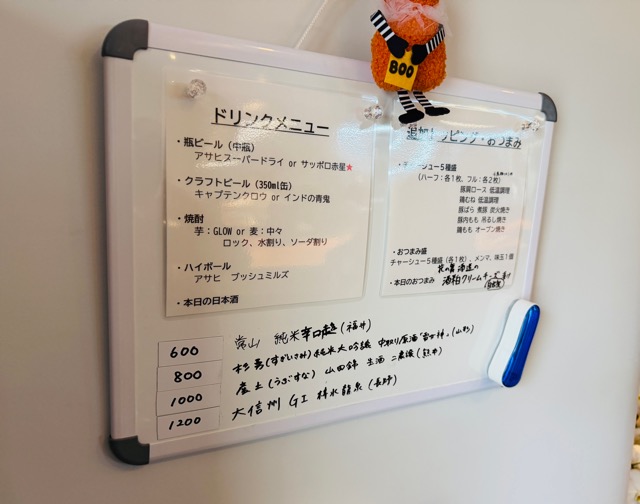 800
ドリンクメニュー
・瓶ビール（中瓶）
アサヒスーパードライ or サッポロ赤星★
・クラフトビール（350ml缶）
キャプテンクロウ or インドの青鬼
・焼酎
芋：GLOW or 麦：中々
ロック、水割り、ソーダ割り
・ハイボール
アサヒ ブッシュミルズ
・本日の日本酒
追加トッピング・おつまみ
・チャーシュー５種盛
（ハーフ：各１枚、フル：各２枚）
豚肩ロース 低温調理
鶏むね 低温調理
豚ばら 煮豚 炭火焼き
豚内もも 吊るし焼き
鶏もも オーブン焼き
・おつまみ盛
チャーシュー５種盛（各１枚）、メンマ、味玉１個
・本日のおつまみ 酒粕クリームチーズ
600 常山 純米辛口超（福井）
800 杉勇（すぎいさみ）純米大吟醸 中取り原酒（山形）
1000 産土（うぶすな）山田錦 生酒 二農醸（熊本）
1200 大信州 GI 梓水龍糸（長野）